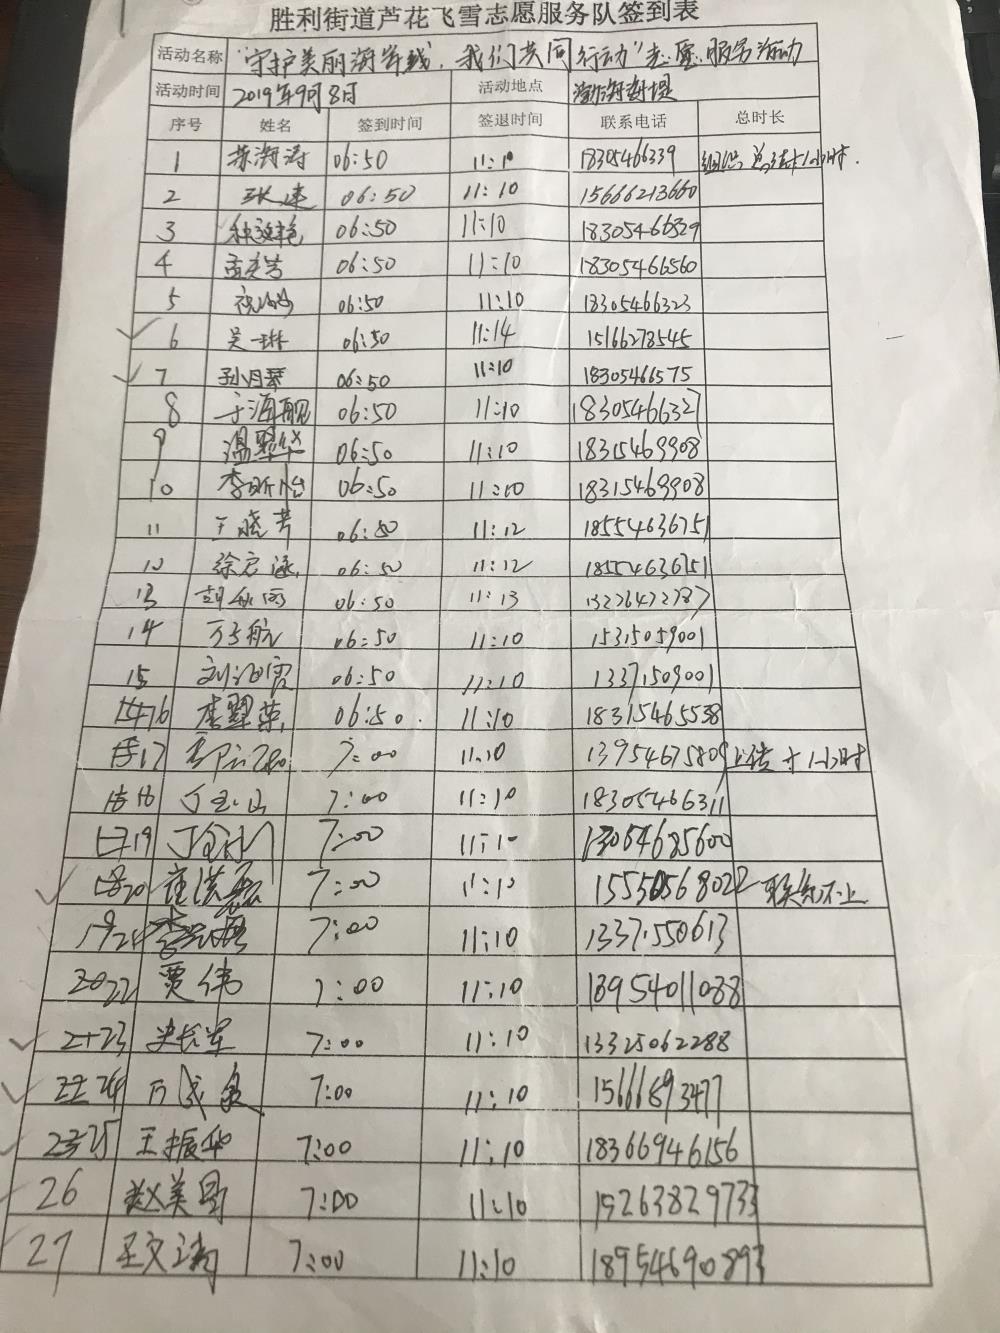 胜利街道芦花飞雪志愿服务队签到表
活动名称 "守护美丽海岸线,我们共同行动"志愿服务活动
活动时间 2019年9月8日 活动地点 渤海
序号 姓名 签到时间 签退时间 联系电话 总时长
1 苏海涛 06:50 11:10 18305466339 组织、总结+1小时.
2 张速 06:50 11:10 15666213660
3 06:50 11:10 18305466329
4 孟美芳 06:50 11:10 18305466560
5 06:50 11:10 18305466323
6 吴一琳 06:50 11:14 15166278545
7 孙月琴 06:50 11:10 18305466575
8 于海靓 06:50 11:10 18305466327
9 温翠华 06:50 11:10 18315469908
10 李昕怡 06:50 11:10 18315469908
11 王晓芳 06:50 11:12 18554636751
徐启涵 06:50 11:12 18554636751
13 胡秋雨 06:50 11:13 13276472787
14 万子航 06:50 11:10 15315059001
15 刘海霞 06:50 11:10 13371509001
16 李翠荣 06:50. 11:10 18315465538
17 7:00 11:10 13954675809 +1小时
丁玉山 7:00 11:10 18305466311
19 7:00 11:10 13054685600
20 崔洪磊 7:00 11:10 15550568022 联系不上
7:00 11:10 13371550613
22 贾伟 7:00 11:10 13954011088
23 史长军 7:00 11:10 13325062288
24 7:00 11:10 15666893477
25 王振华 7:00 11:10 18366946156
26 赵美昌 7:00 11:10 15263829733
27 王文涛 7:00 11:10 18954690893